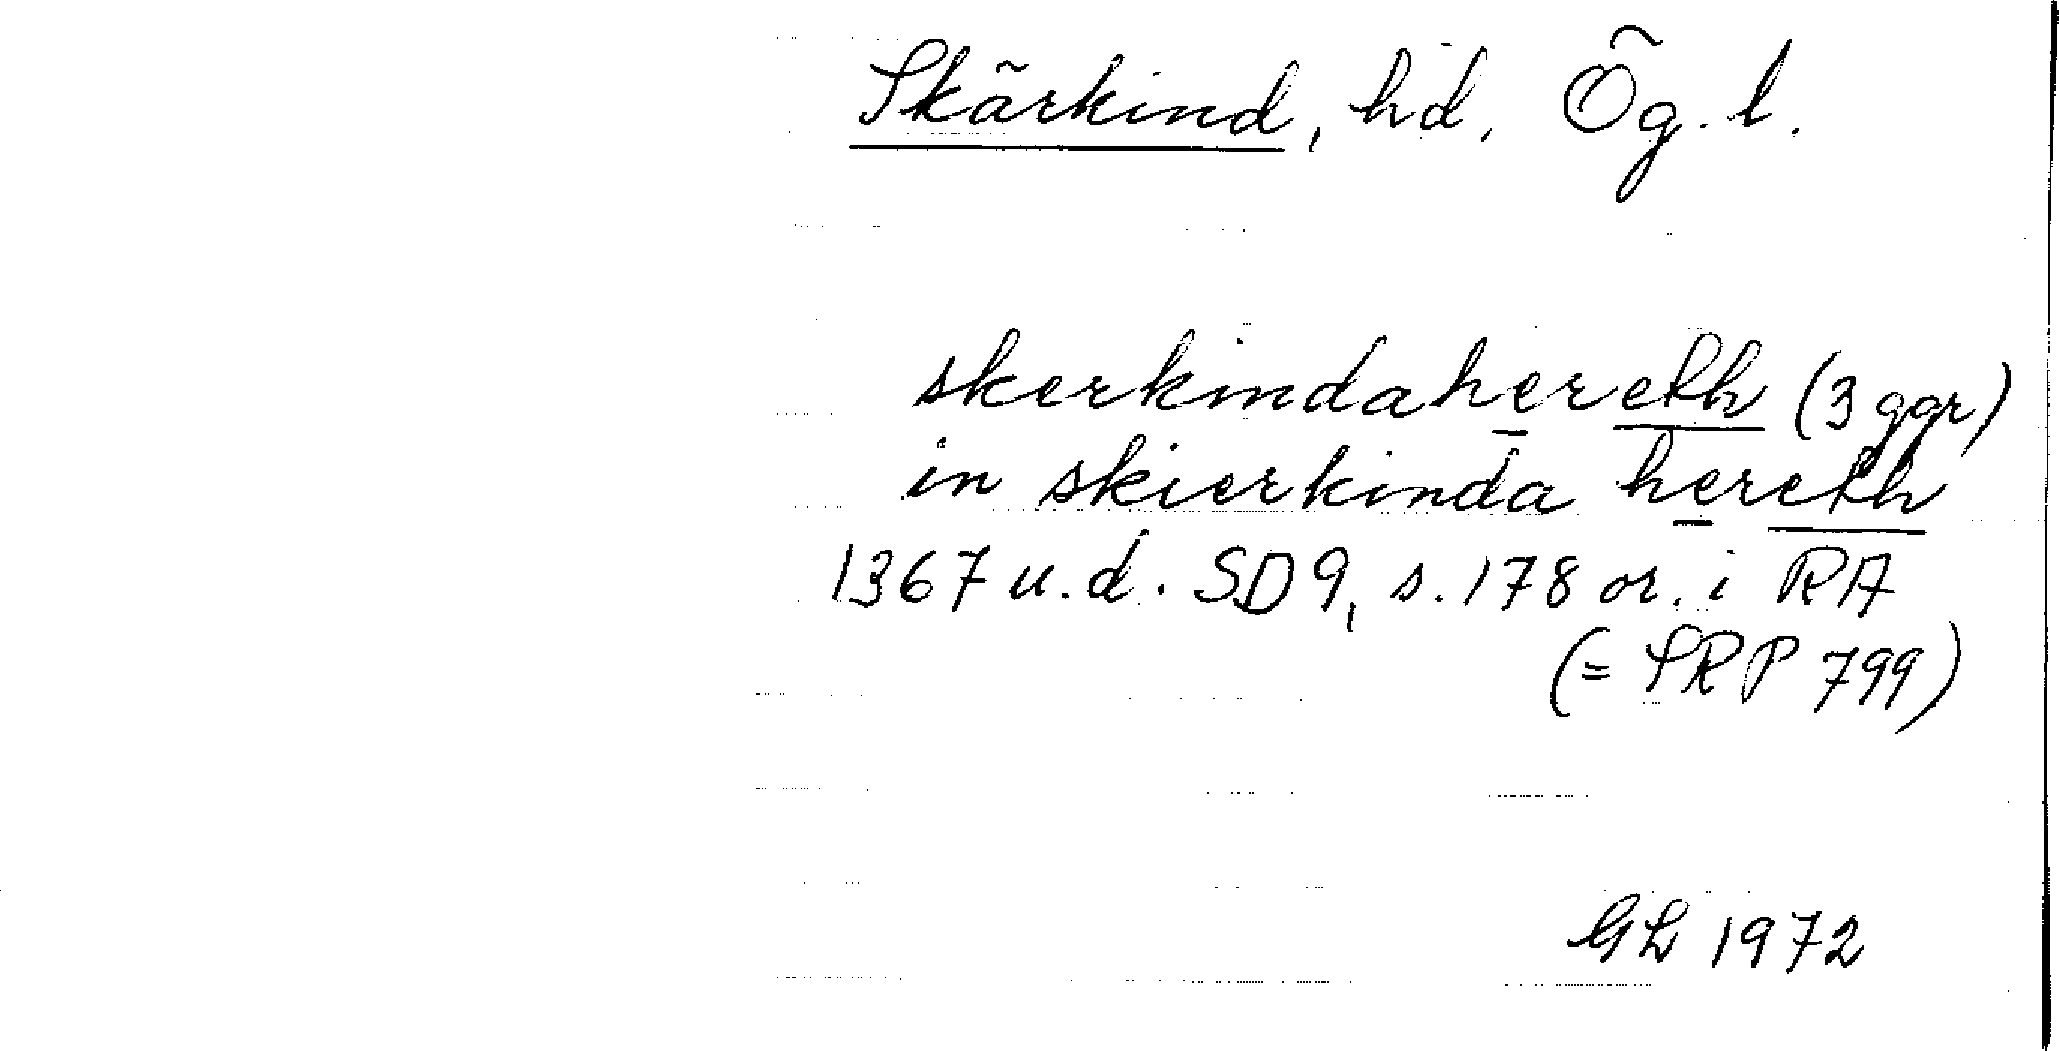 Skärkind, hd, Ög. l.
skerkindahereth (3 ggr)
in skierkinda hereth
1367 u.d. SD 9, s. 178 or. i RA
(= SRP 799)
GL 1972